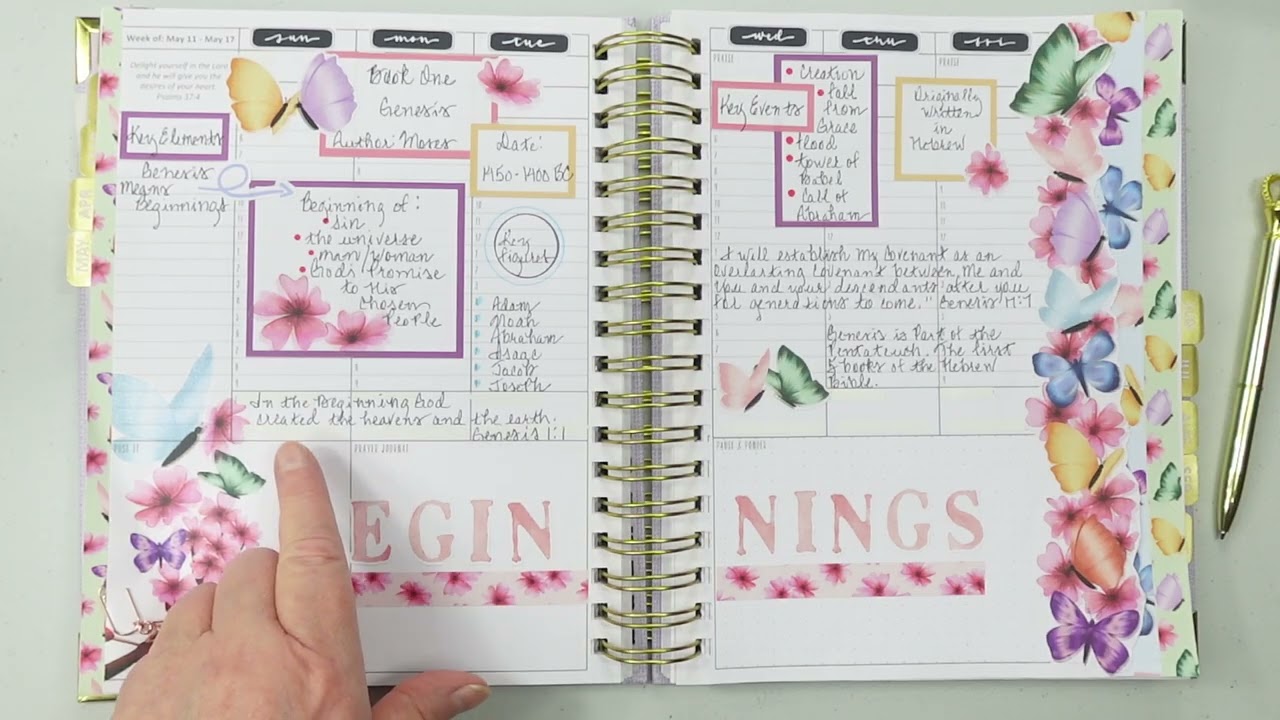 Week of: May 11 - May 17
Delight yourself in the Lord
and he will give you the
desires of your heart.
Psalms 37:4
sun
mon
tue
Book One
Genesis
Author: Moses
Key Elements
Genesis
Means
Beginnings
Date:
1450-1400 BC
Beginning of:
sin
the universe
man/woman
God's Promise
to His
Chosen
People
Key
Figures
Adam
Noah
Abraham
Isaac
Jacob
Joseph
In the Beginning God
created the heavens and the earth.
Genesis 1:1
PRAYER JOURNAL
EGIN
APR
MAY
wed
thu
fri
PRAISE
PRAISE
Key Events
Creation
fall
from
Grace
flood
tower of
Babel
Call of
Abraham
Originally
written
in
Hebrew
"I will establish My Covenant as an
everlasting covenant between Me and
you and your descendants after you
for generations to come." Genesis 17:7
Genesis is Part of the
Pentateuch. The first
5 books of the Hebrew
Bible.
PAUSE & PONDER
NINGS